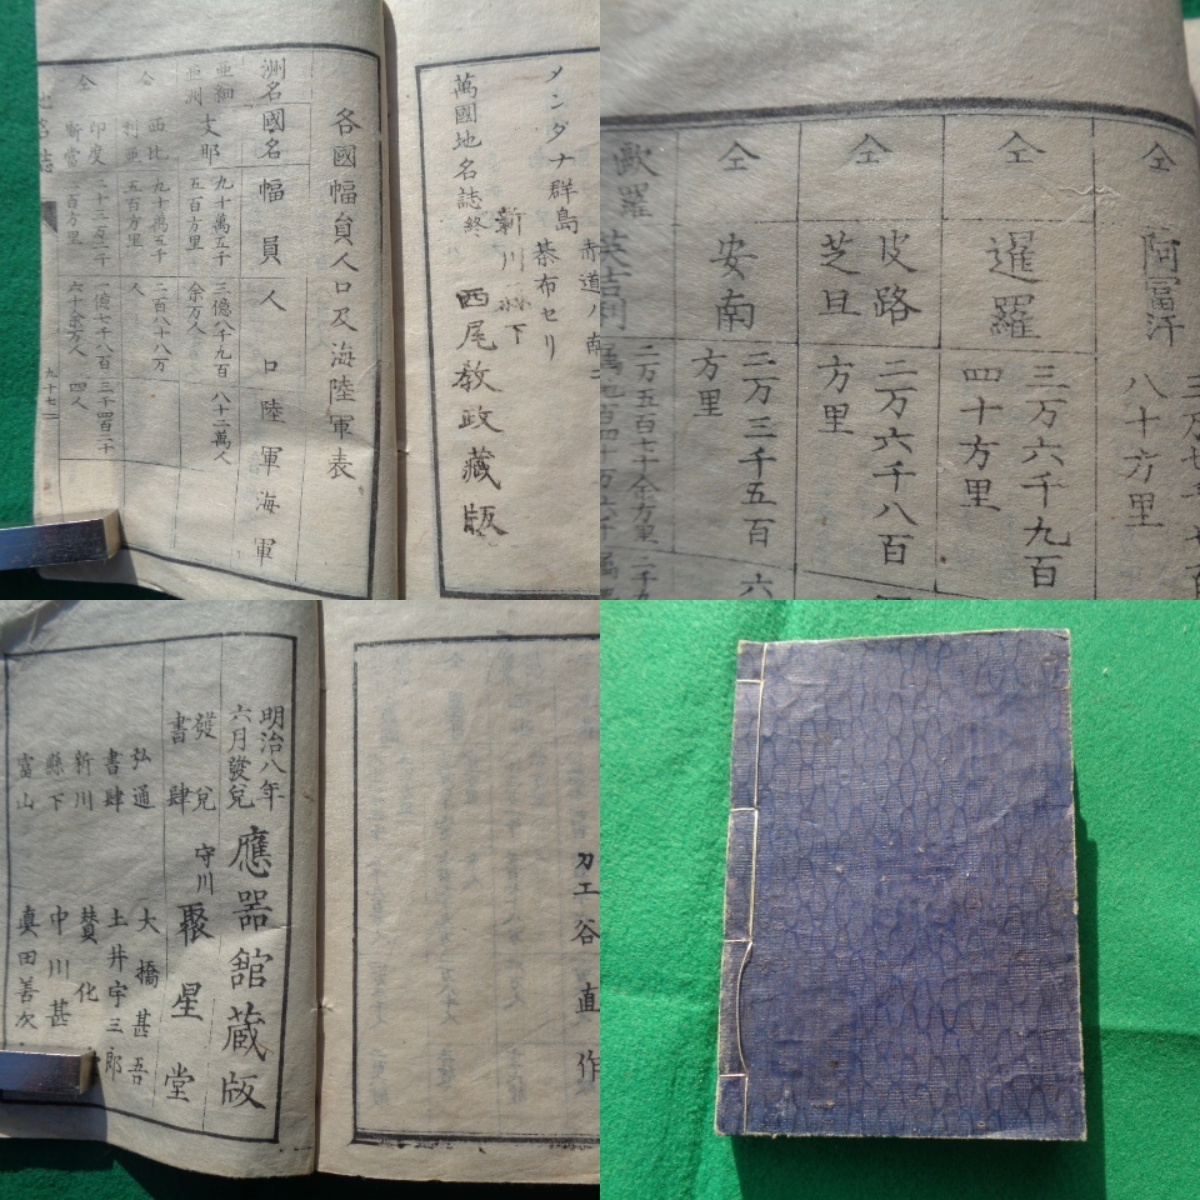 メンダナ群島 赤道ノ南ニ
碁布セリ
萬國地名誌終
新川縣下
西尾教政藏版
各國幅員人口及海陸軍表
洲名 國名 幅員 人口 陸軍 海軍
亜細亜洲 支那 九十萬五千五百方里 三億八千九百余万人 八十二萬人
仝 西比利亜 九十萬五千五百方里 二百八十八万人
仝 印度 二十三万二千二百方里 一億七千八百六十余万人 三千四百二十四人
地名誌
九十七
仝 阿富汗 八十方里
仝 暹羅 三万六千九百四十方里
仝 皮路芝旦 二万六千八百方里
仝 安南 二万三千五百方里
歐羅 英吉利 二万五百七十余方里
刀工谷直作
明治八年六月發兌 應器舘蔵版
發兌書肆 守川 聚星堂
弘通書肆 大橋甚吾
土井宇三郎
新川縣下富山 賛化
中川甚
眞田善次